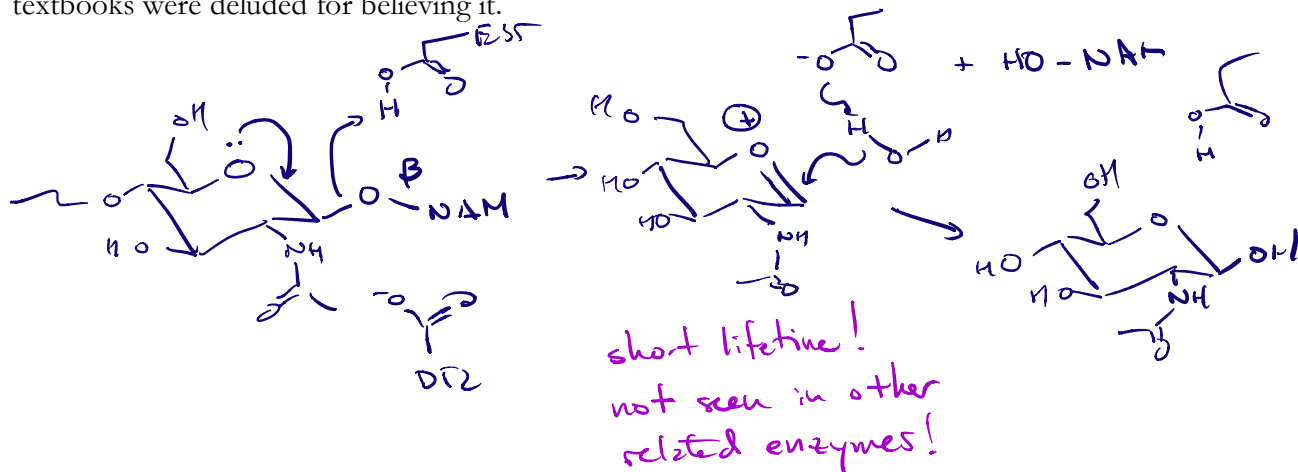 textbooks were deluded for believing it.
E35
O
O
H
OH
O
O
β
O
NAM
HO
NH
O
-O
O
D52
-O
O
+ HO-NAM
HO
+
O
H
O
HO
HO
NH
O
O
O
H
OH
O
HO
HO
OH
NH
O
short lifetime!
not seen in other
related enzymes!